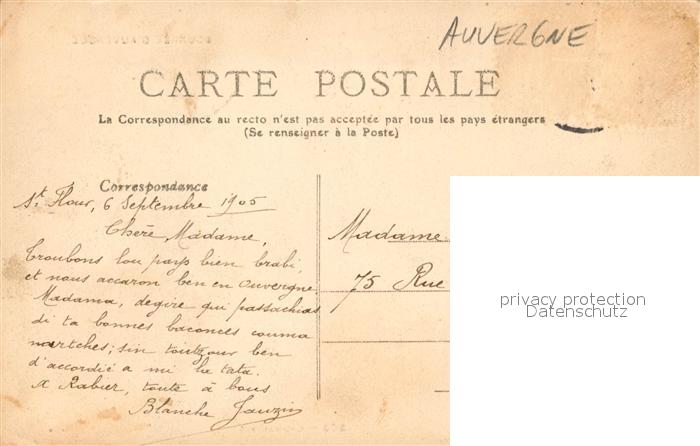 AUVERGNE
CARTE POSTALE
La Correspondance au recto n'est pas acceptée par tous les pays étrangers
(Se renseigner à la Poste)
Correspondance
St Flour, 6 Septembre 1905
Chère Madame,
Troubons lou pays bien brabé,
et nous accaron ben en Ouvergne.
Madama, degire qui passachias
di ta bonnes baconces couma
nartches; sin toutzour ben
d'accordié a mi la tata.
A Rabier, toute à bous
Blanche Jauzin
Madame
75 Rue
privacy protection
Datenschutz